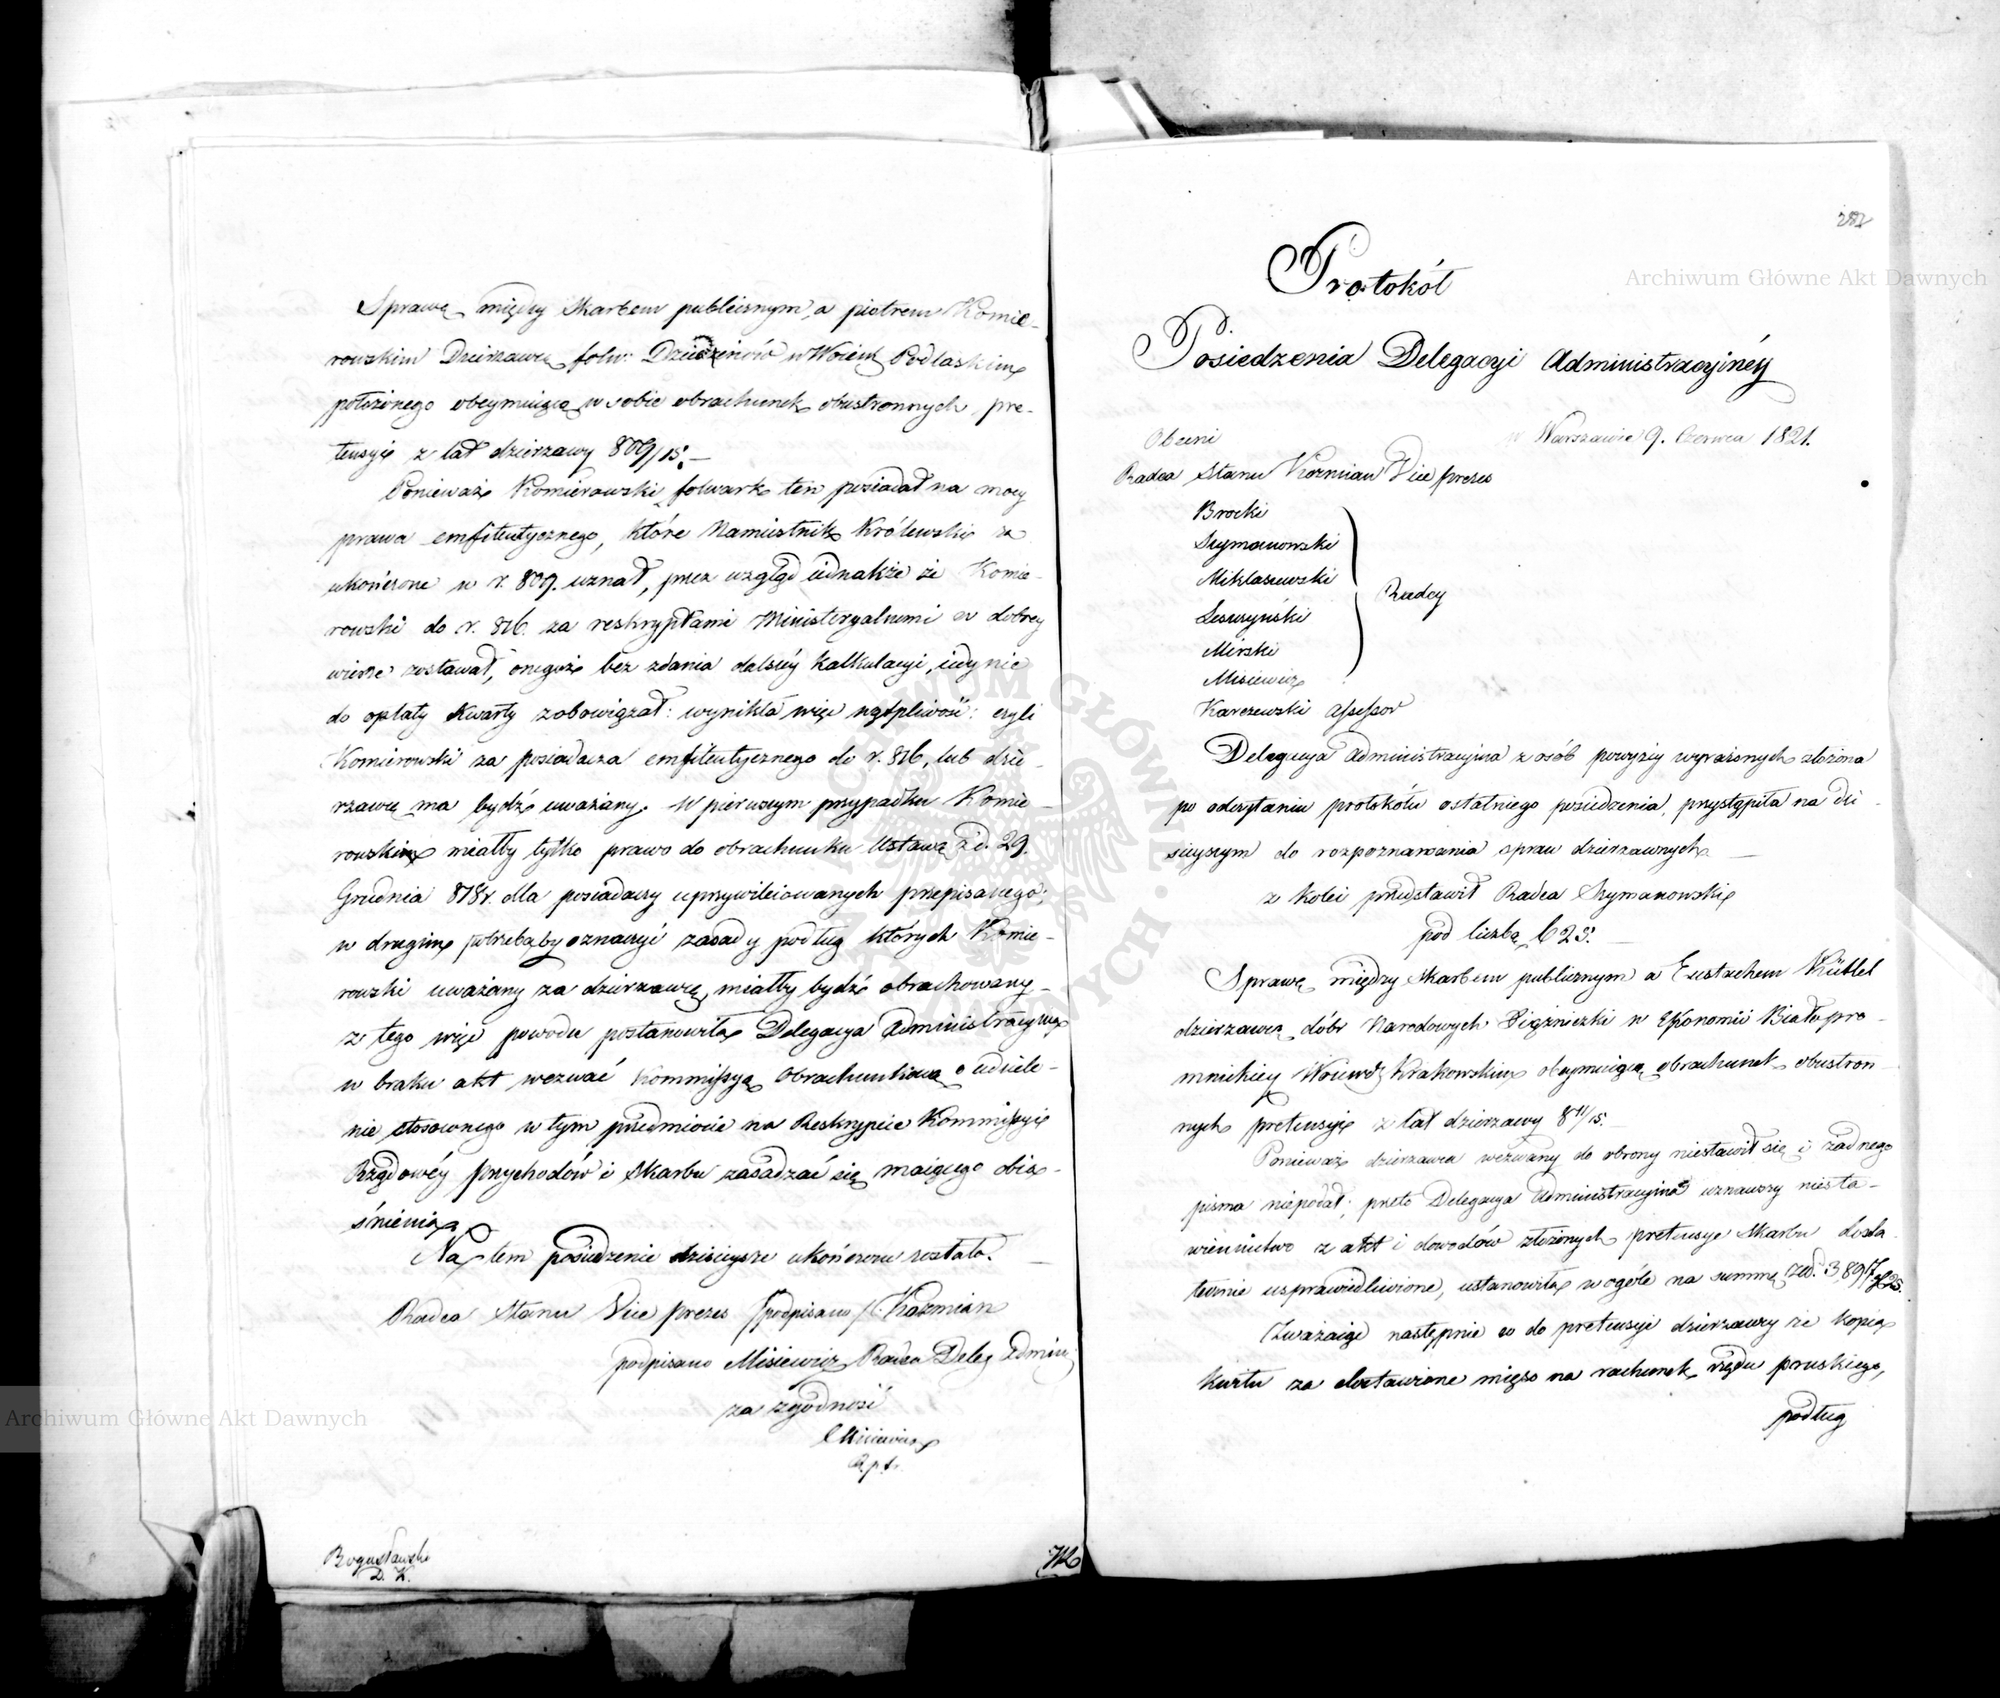 Sprawę między Skarbem publicznym, a piotrem Komie-
rowskim Dzierzawcą folw: w Woiew. Podlaskim
położonego obeymuiącą w sobie obrachunek obustronnych pre-
tensyi z lat dzierzawy 809/15. —
Ponieważ Komierowski folwark ten posiadał na mocy
prawa emfiteutycznego, które Namiestnik Królewski za
ukończone w r. 809. uznał, przez wzgląd iednakże że Komie-
rowski do r. 816. za reskryptami Ministeryalnemi w dobrey
wierze zostawał, onegoż bez zdania dalszéy kalkulacyi, iedynie
do opłaty kwarty zobowiązał: wynikła więc wątpliwość: czyli
Komierowski za posiadacza emfiteutycznego do r. 816, lub dzie-
rzawcę ma bydź uważany. W pierwszym przypadku Komie-
rowski miałby tylko prawo do obrachunku Ustawą z d. 29.
Grudnia 818r. dla posiadaczy uprzywileiowanych przepisanego,
w drugim potrzebaby oznaczyć zasady podług których Komie-
rowski uważany za dzierzawcę, miałby bydź obrachowany. —
z tego więc powodu postanowiła Delegacya Administracyina
w braku akt wezwać Kommissyą Obrachunkową o udziele-
nie stosownego w tym przedmiocie na Reskrypcie Kommissyi
Rządowéy przychodów i Skarbu zasadzać się maiącego obia-
śnienia
Na tem posiedzenie dzisieysze ukończone zostało. —
Radca Stanu Vice prezes /podpisano/ Koźmian
podpisano Misiewicz Radca Deleg Admin:
za zgodność
Misiewicz
Bogusławski
D. K.
Protokół
Posiedzenia Delegacyi Administracyinéy
w Warszawie 9. Czerwca 1821.
Obecni
Radca Stanu Koźmian Vice prezes
Brocki
Szymanowski
Miklaszewski
Leszczyński
Mirski
Misiewicz
Radcy
Karczewski Assessor
Delegacya Administracyina z osób powyżéy wyrażonych złożona
po odczytaniu protokółu ostatniego posiedzenia, przystąpiła na dzi-
sieyszym do rozpoznawania spraw dzierzawnych —
z kolei przedstawił Radca Szymanowski
pod liczbą 625. —
Sprawę między Skarbem publicznym a Eustachem Küttel
dzierzawcą dóbr Narodowych w Ekonomii Białopro-
mnickiey Woiewd: Krakowskim obeymuiącą obrachunek obustron-
nych pretensyi z lat dzierzawy 811/15. —
Ponieważ dzierzawca wezwany do obrony niestawił się i żadnego
pisma niepodał; przeto Delegacya Administracyina uznawszy niesta-
wiennictwo z akt i dowodów złożonych pretensye Skarbu dosta-
tecznie usprawiedliwione, ustanowiła w ogóle na summę złd. 3,897. g 25.
Zważaiąc następnie co do pretensyi dzierzawcy że kopia
kwitu za dostawione mięso na rachunek rządu pruskiego,
podług
Archiwum Główne Akt Dawnych
Archiwum Główne Akt Dawnych